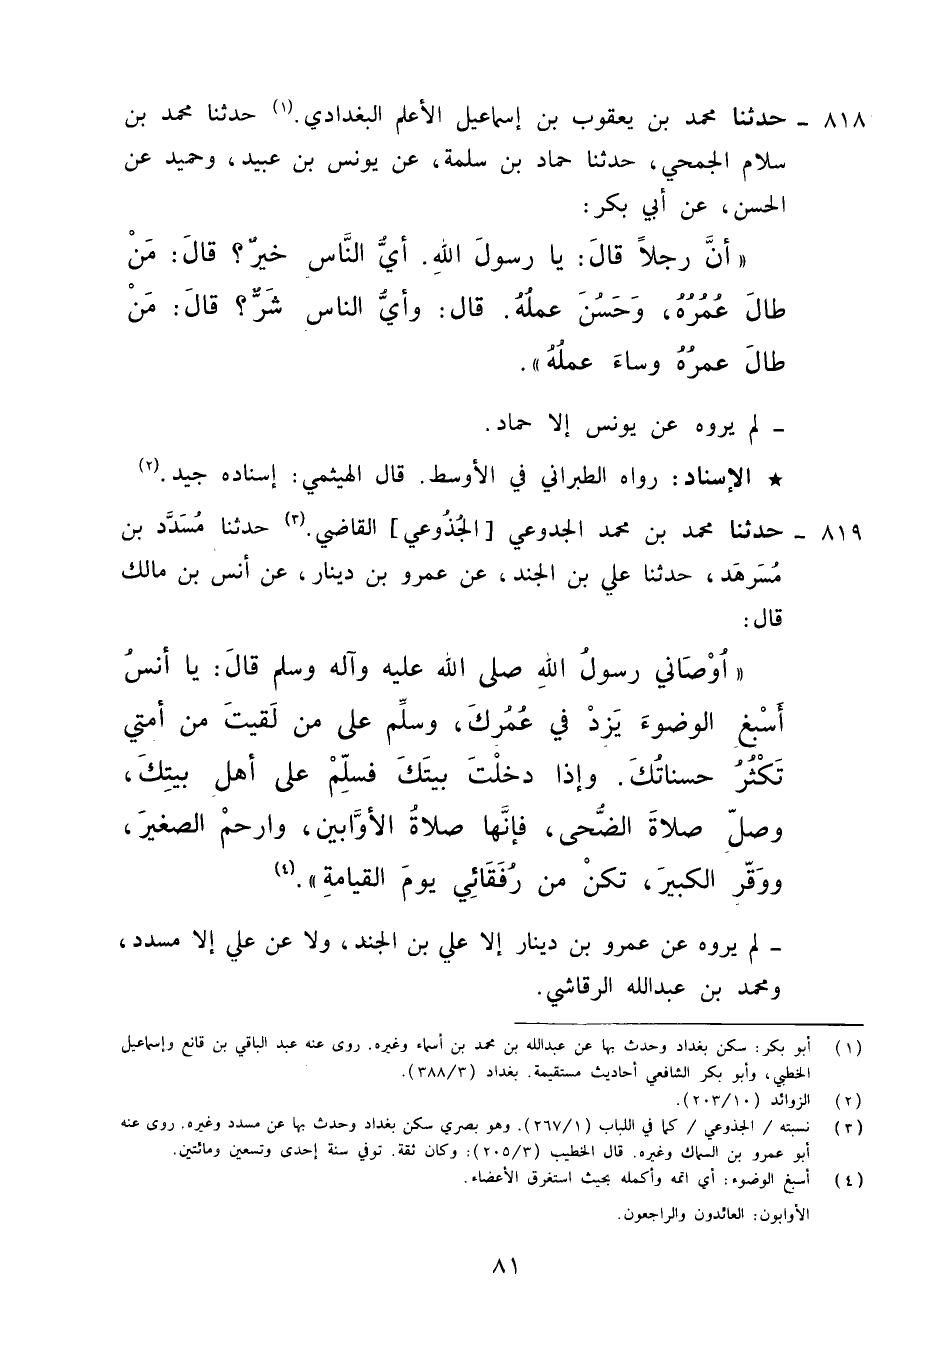 ٨١٨ ـ حدثنا محمد بن يعقوب بن إسماعيل الأعلم البغدادي.(١) حدثنا محمد بن
سلام الجمحي، حدثنا حماد بن سلمة، عن يونس بن عبيد، وحميد عن
الحسن، عن أبي بكر:
« أنَّ رجلاً قالَ: يا رسولَ اللهِ. أيُّ النَّاس خيرٌ؟ قالَ: مَنْ
طالَ عُمُرُهُ، وَحَسُنَ عملُهُ. قال: وأيُّ الناس شَرٌّ؟ قالَ: مَنْ
طالَ عمرُهُ وساءَ عملُهُ».
ـ لم يروه عن يونس إلا حماد.
★ الإسناد: رواه الطبراني في الأوسط. قال الهيثمي: إسناده جيد.(٢)
٨١٩ ـ حدثنا محمد بن محمد الجدوعي [الجُذُوعي] القاضي.(٣) حدثنا مُسَدَّد بن
مُسَرهَد، حدثنا علي بن الجند، عن عمرو بن دينار، عن أنس بن مالك
قال:
« أوْصَاني رسولُ اللهِ صلى الله عليه وآله وسلم قالَ: يا أنسُ
أَسْبغِ الوضوءَ يَزِدْ في عُمُركَ، وسلِّم على من لَقيتَ من أمتي
تَكْثُرُ حسناتُكَ. وإذا دخلْتَ بيتَكَ فسلِّمْ على أهل بيتِكَ،
وصلّ صلاةَ الضُّحى، فإنَّها صلاةُ الأوَّابين، وارحمْ الصغيرَ،
ووَقّر الكبيرَ، تكنْ من رُفَقَائِي يومَ القيامةِ».(٤)
ـ لم يروه عن عمرو بن دينار إلا علي بن الجند، ولا عن علي إلا مسدد،
ومحمد بن عبدالله الرقاشي.
(١) أبو بكر: سكن بغداد وحدث بها عن عبدالله بن محمد بن أسماء وغيره. روى عنه عبد الباقي بن قانع وإسماعيل
الخطبي، وأبو بكر الشافعي أحاديث مستقيمة. بغداد (٣٨٨/٣).
(٢) الزوائد (٢٠٣/١٠).
(٣) نسبته / الجذوعي / كما في اللباب (٢٦٧/١). وهو بصري سكن بغداد وحدث بها عن مسدد وغيره. روى عنه
أبو عمرو بن السماك وغيره. قال الخطيب (٢٠٥/٣): وكان ثقة. توفي سنة إحدى وتسعين ومائتين.
(٤) أسبغ الوضوء: أي اتمه وأكمله بحيث استغرق الأعضاء.
الأوابون: العائدون والراجعون.
٨١